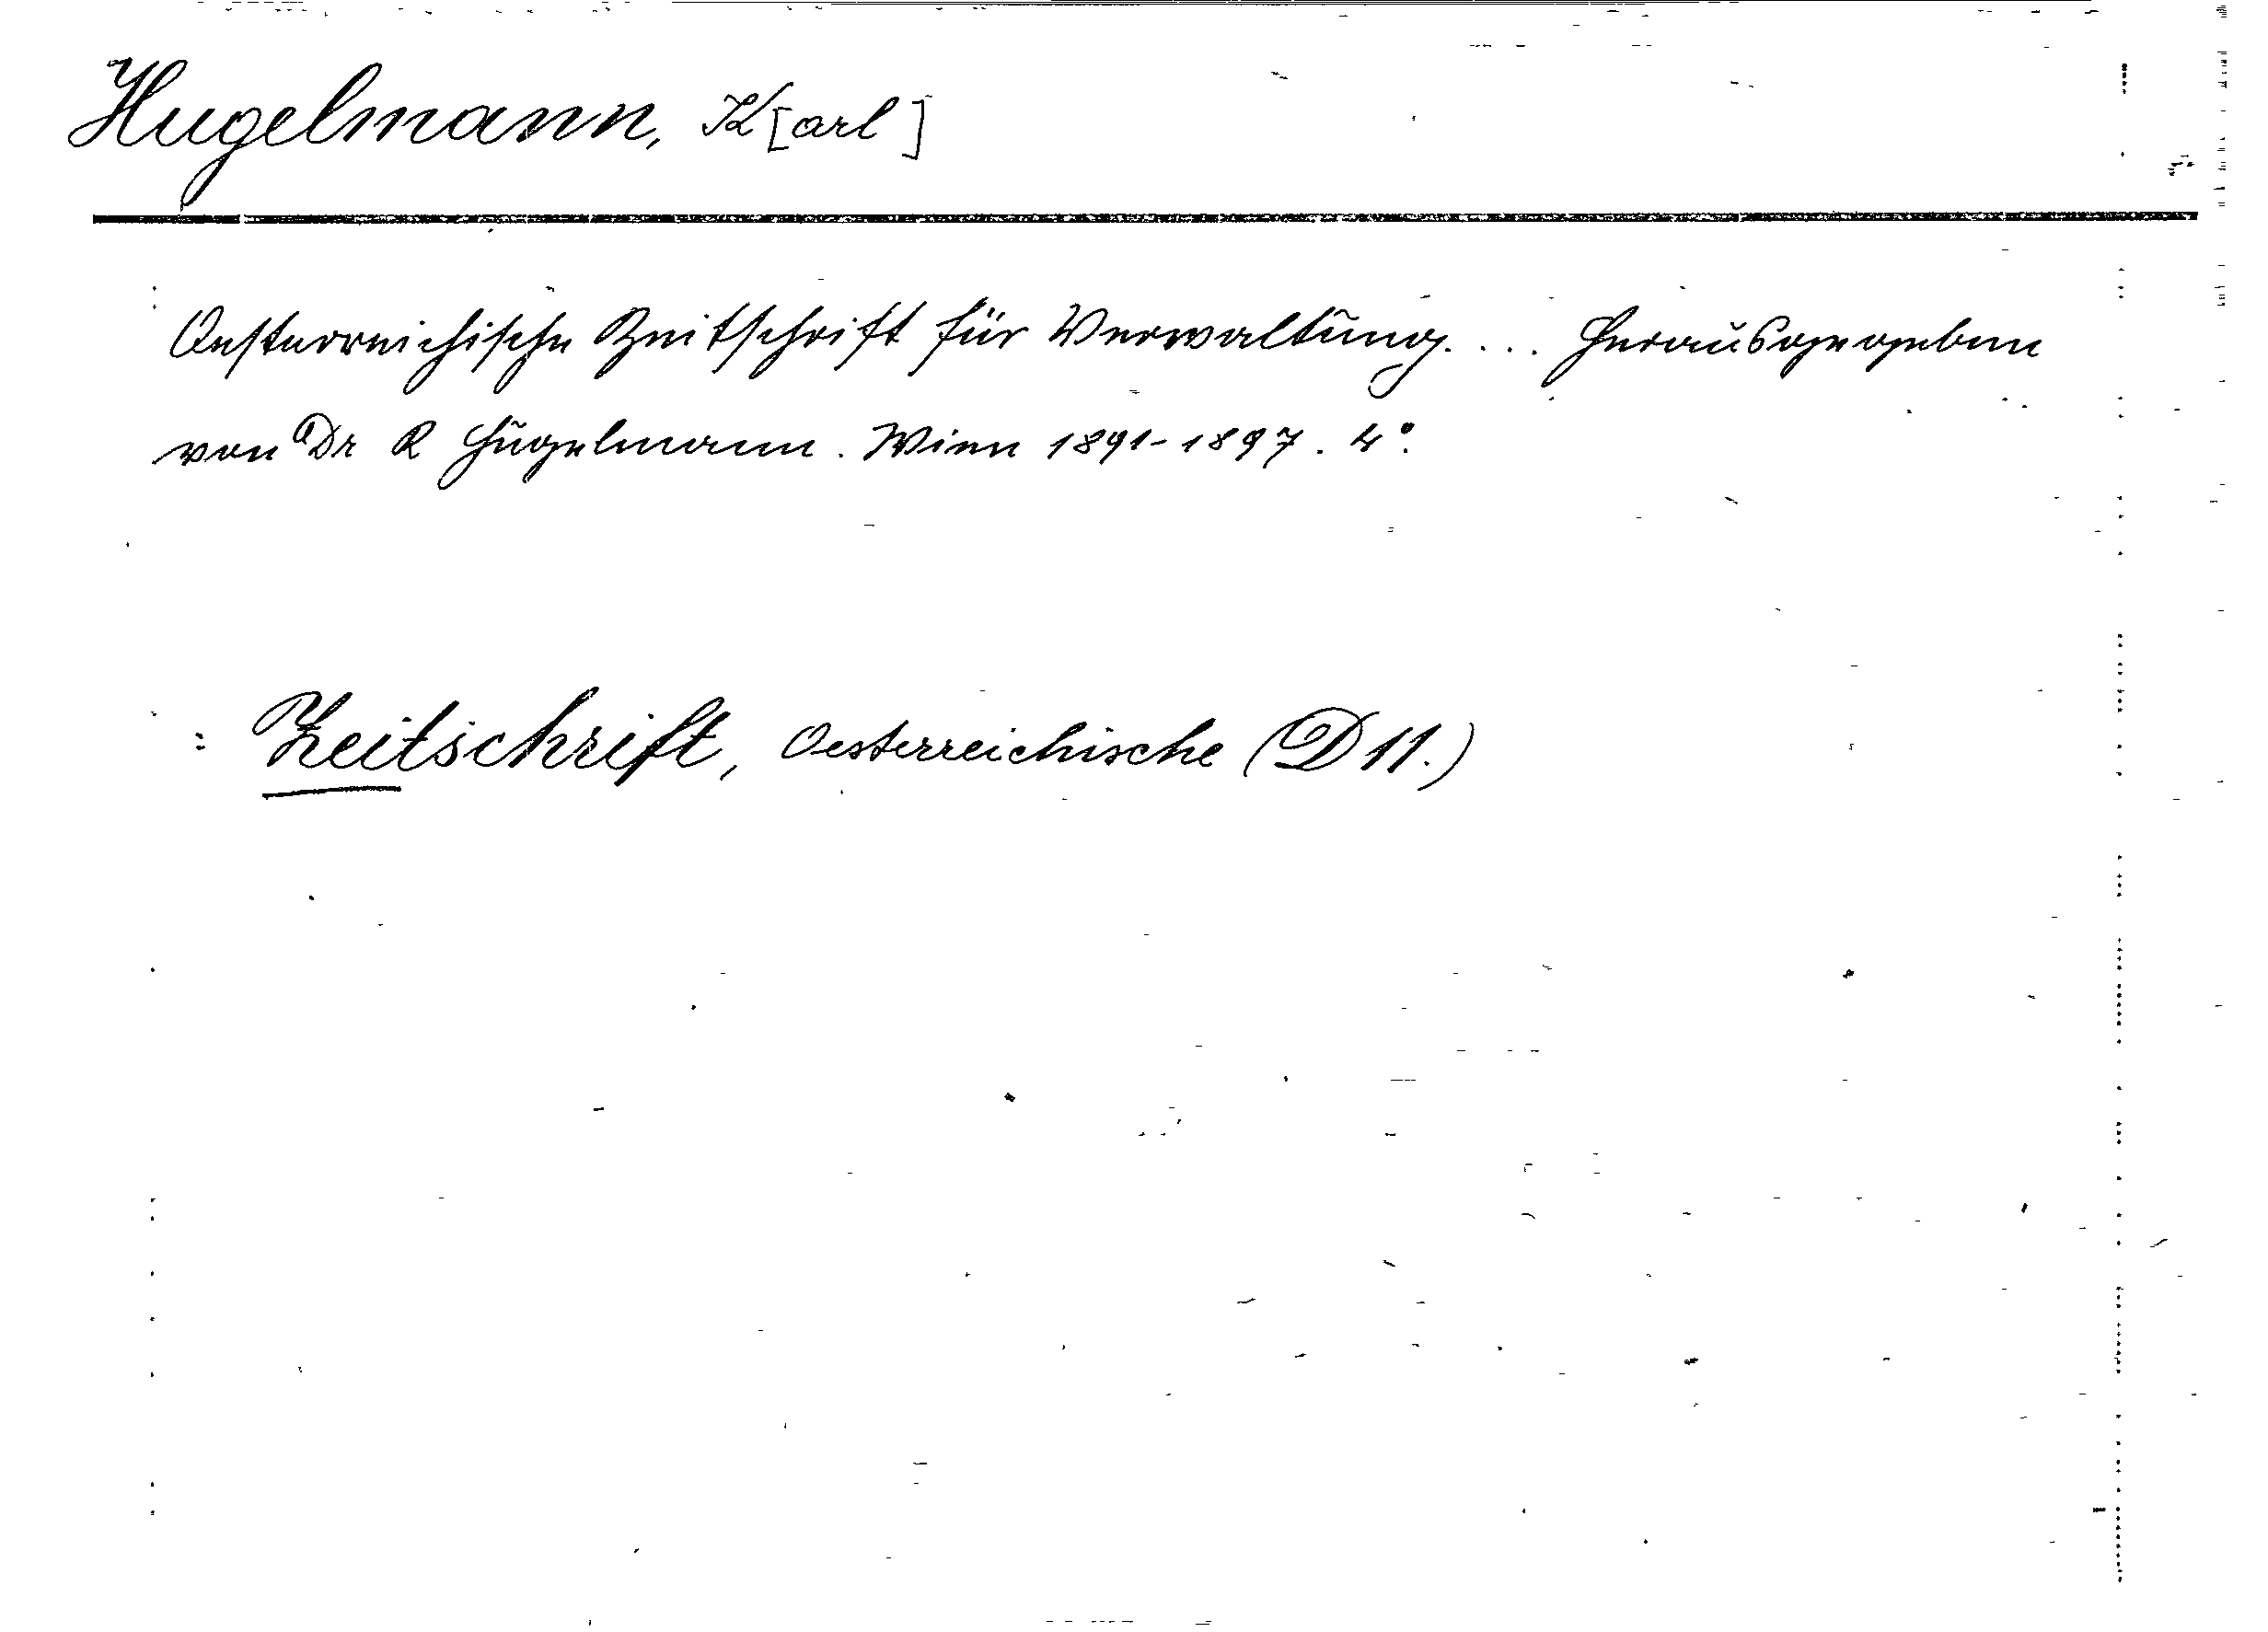 Hugelmann, K[arl]
Oesterreichische Zeitschrift für Verwaltung. ... Herausgegeben
von Dr K Hugelmann. Wien 1891-1897. 4°.
= Zeitschrift, Oesterreichische (D 11.)